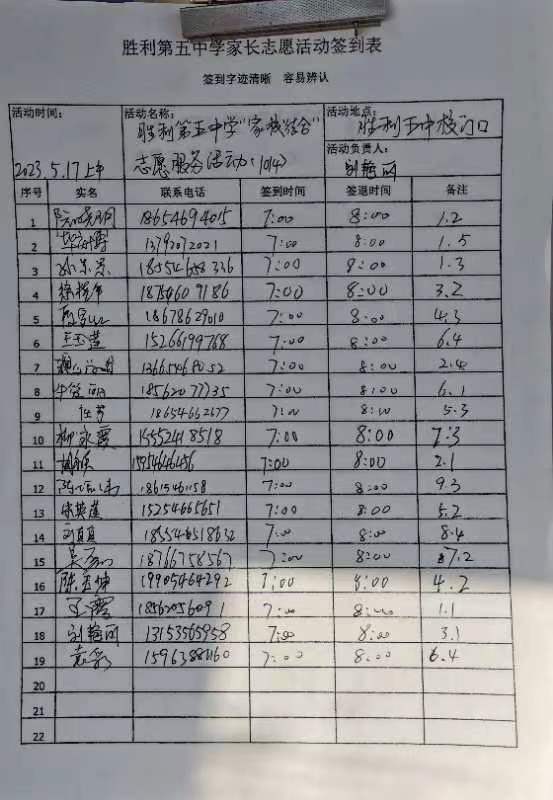 胜利第五中学家长志愿活动签到表
签到字迹清晰 容易辨认
活动时间: 活动名称: 活动地点:
胜利第五中学"家校结合" 胜利五中校门口
活动负责人:
2023.5.17上午 志愿服务活动 刘艳丽
序号 实名 联系电话 签到时间 签退时间 备注
1 18654694015 7:00 8:00 1.2
2 13792072021 7:00 8:00 1.5
3 18554658336 7:00 8:00 1.3
4 18754609186 7:00 8:00 3.2
5 18678629010 7:00 8:00 4.3
6 王玉莲 15266199768 7:00 8:00 6.4
7 13665468052 7:00 8:00 2.4
8 18562077735 7:00 8:00 6.1
9 任芳 18654662677 7:00 8:00 5.3
10 柳永霞 15552418518 7:00 8:00 7.3
11 15954646456 7:00 8:00 2.1
12 7:00 8:00 9.3
13 宋英莲 15254665651 7:00 8:00 5.2
14 刘真真 7:00 8:00 8.4
15 18766758567 7:00 8:00 7.2
16 陈玉坤 19905464292 7:00 8:00 4.2
17 王霞 18562056091 7:00 8:00 1.1
18 刘艳丽 13153565958 7:00 8:00 3.1
19 7:00 8:00 6.4
20
21
22